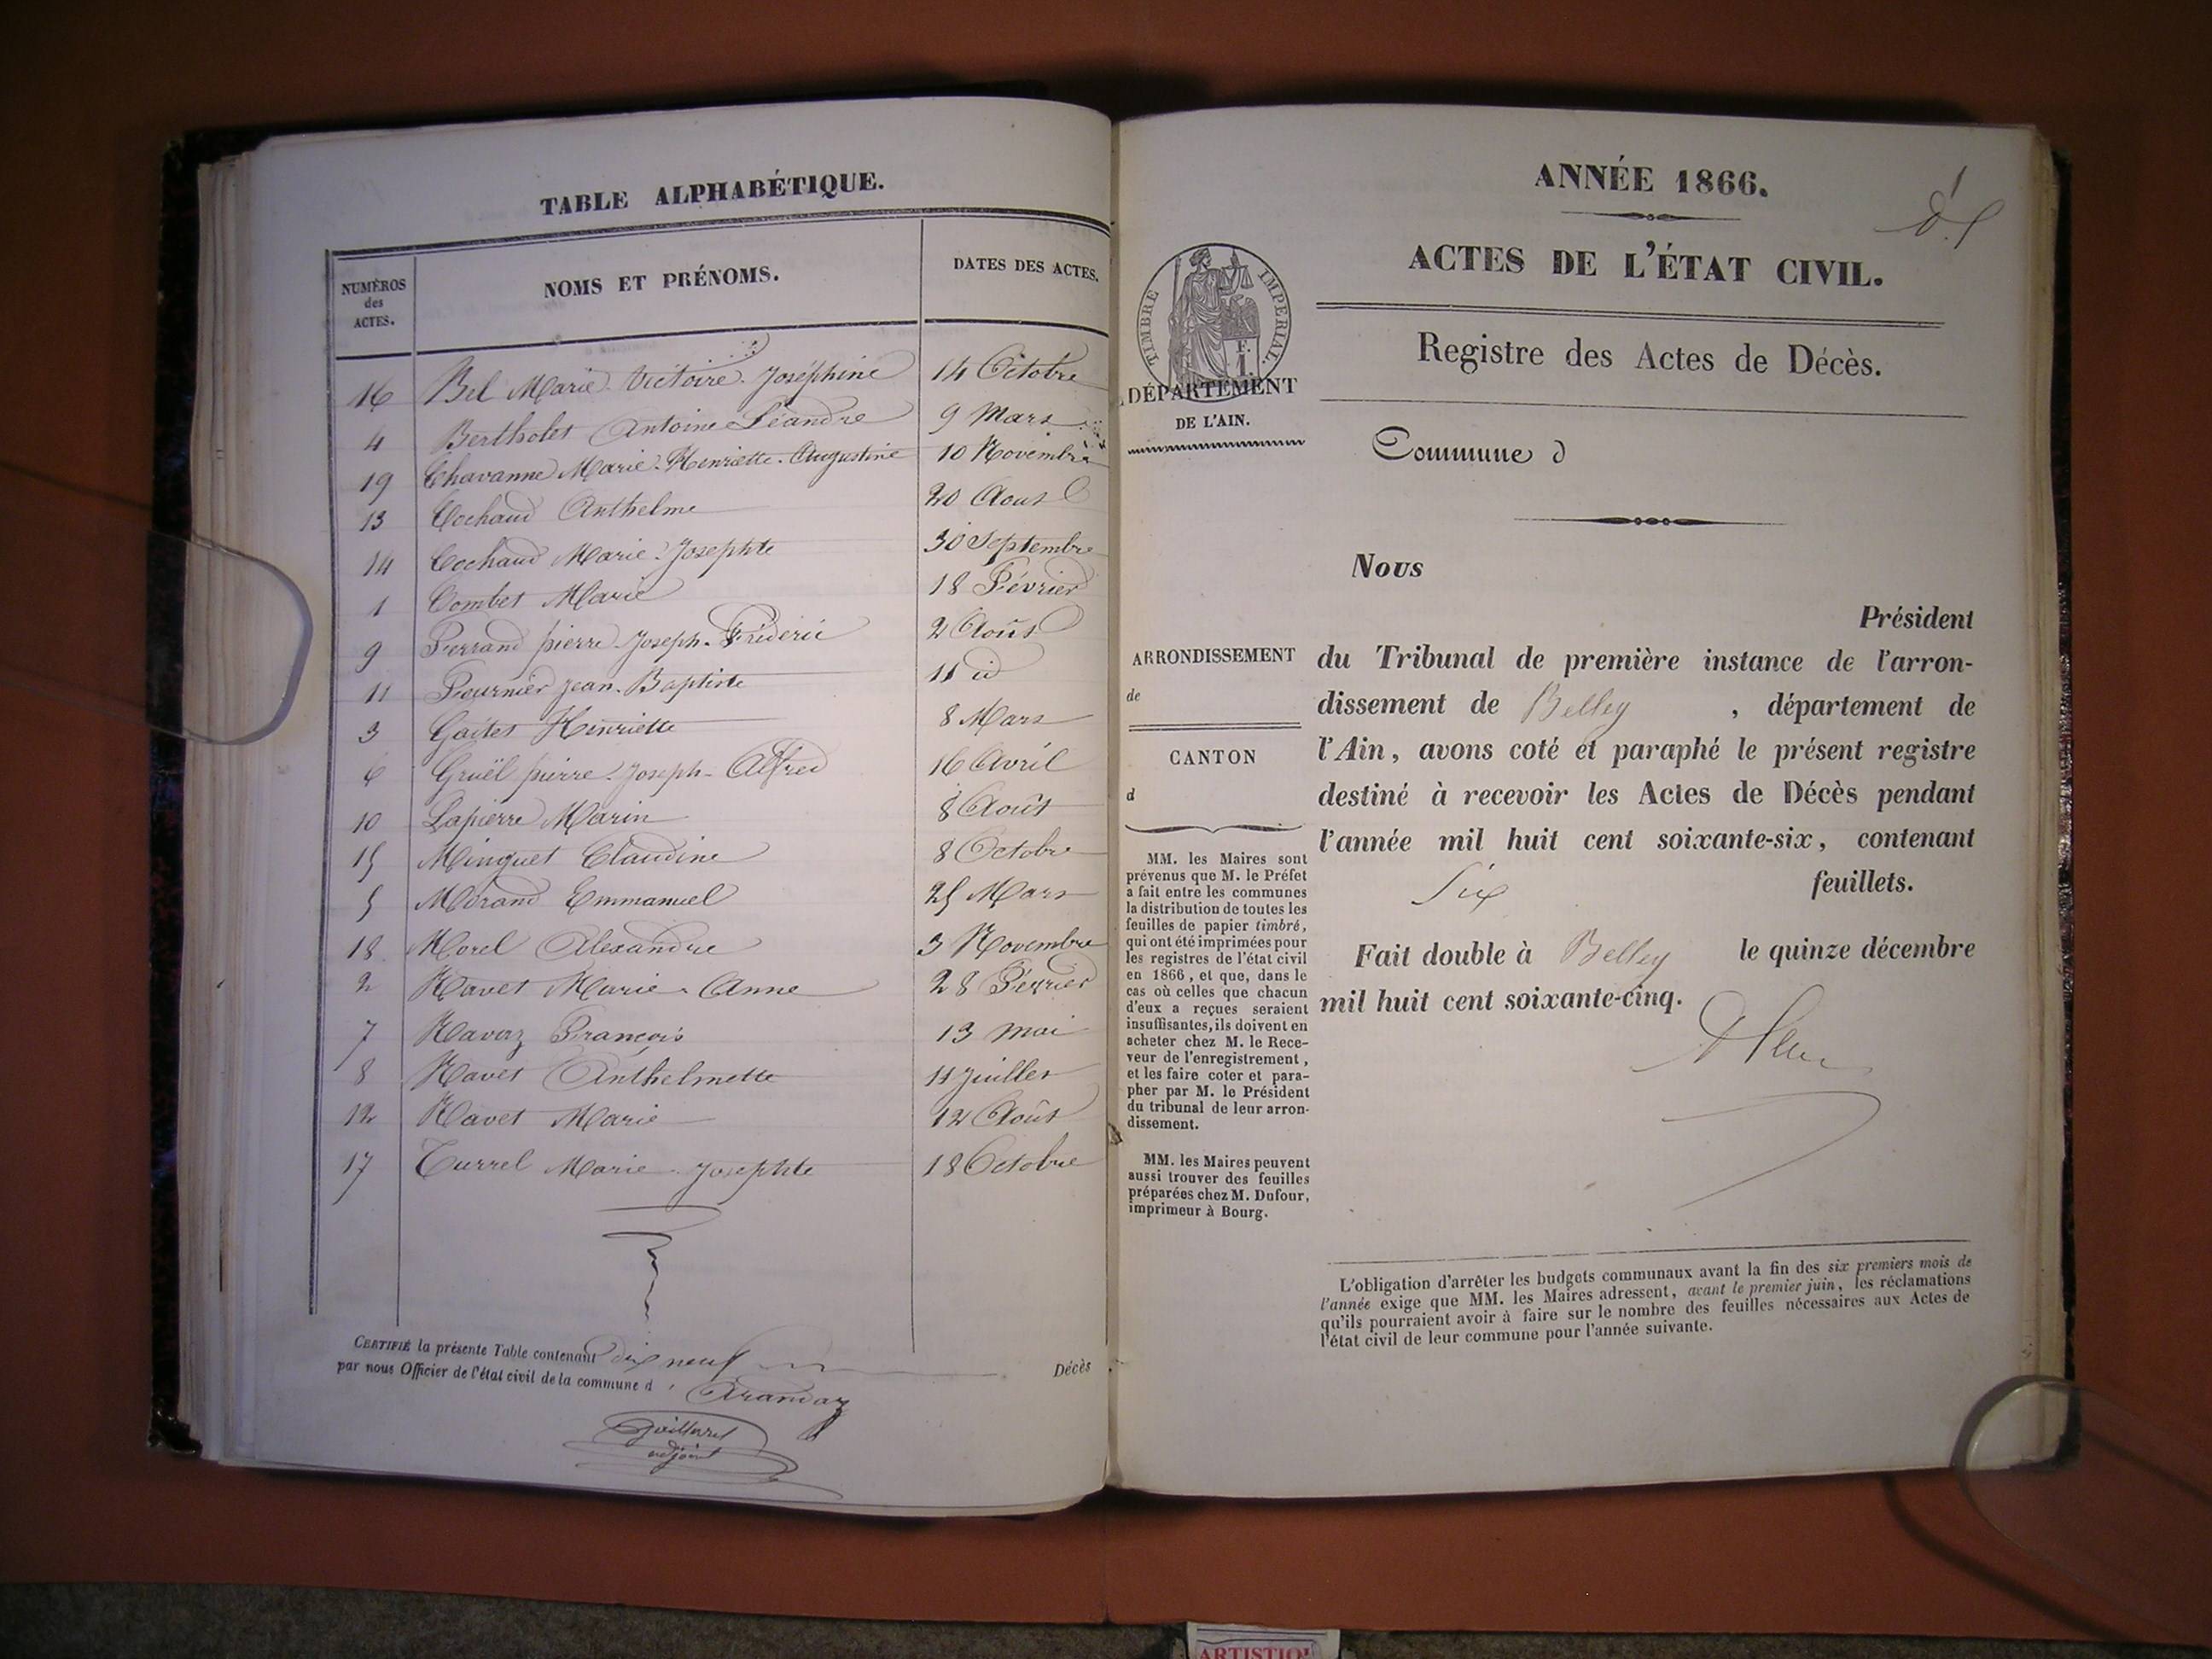 TABLE ALPHABÉTIQUE.
NUMÉROS
des
ACTES.
NOMS ET PRÉNOMS.
DATES DES ACTES.
16 Bel Marie Victoire Joséphine 14 Octobre
4 Bertholet Antoine Léandre 9 Mars
19 Chavanne Marie-Henriette-Augustine 10 Novembre
13 Cochaud Anthelme 20 Aout
14 Cochaud Marie Josephte 30 Septembre
1 Combet Marie 18 Février
9 Ferrand pierre Joseph-Fréderic 2 Août
11 Fournier jean-Baptiste 11 id
3 Goitet Henriette 8 Mars
6 Gruël pierre-Joseph-Alfred 16 Avril
10 Lapierre Marin 8 Août
15 Minguet Claudine 8 Octobre
5 Morand Emmanuel 25 Mars
18 Morel Alexandre 3 Novembre
2 Ravet Marie-Anne 28 Février
7 Ravaz François 13 mai
8 Ravet Anthelmette 11 juillet
12 Ravet Marie 12 Août
17 Turrel Marie-Josephte 18 Octobre
CERTIFIÉ la présente Table contenant dix neuf Décès
par nous Officier de l'état civil de la commune d'Arandaz
adjoint
ANNÉE 1866.
ACTES DE L'ÉTAT CIVIL.
TIMBRE IMPÉRIAL.
F.
1.
Registre des Actes de Décès.
DÉPARTEMENT
DE L'AIN.
Commune d
Nous
Président
ARRONDISSEMENT
de
CANTON
d
du Tribunal de première instance de l'arron-
dissement de Belley , département de
l'Ain, avons coté et paraphé le présent registre
destiné à recevoir les Actes de Décès pendant
l'année mil huit cent soixante-six, contenant
Six feuillets.
Fait double à Belley le quinze décembre
mil huit cent soixante-cinq.
MM. les Maires sont
prévenus que M. le Préfet
a fait entre les communes
la distribution de toutes les
feuilles de papier timbré,
qui ont été imprimées pour
les registres de l'état civil
en 1866, et que, dans le
cas où celles que chacun
d'eux a reçues seraient
insuffisantes, ils doivent en
acheter chez M. le Rece-
veur de l'enregistrement,
et les faire coter et para-
pher par M. le Président
du tribunal de leur arron-
dissement.
MM. les Maires peuvent
aussi trouver des feuilles
préparées chez M. Dufour,
imprimeur à Bourg.
L'obligation d'arrêter les budgets communaux avant la fin des six premiers mois de
l'année exige que MM. les Maires adressent, avant le premier juin, les réclamations
qu'ils pourraient avoir à faire sur le nombre des feuilles nécessaires aux Actes de
l'état civil de leur commune pour l'année suivante.